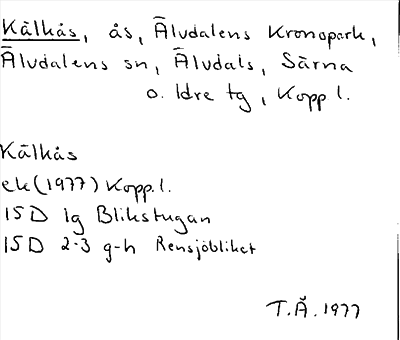 Kälkås, ås, Älvdalens Kronopark,
Älvdalens sn, Älvdals, Särna
o. Idre tg, Kopp l.
Kälkås
ek (1977) Kopp. l.
15D 1g Blikstugan
15D 2-3 g-h Rensjöbliket
T.Å. 1977